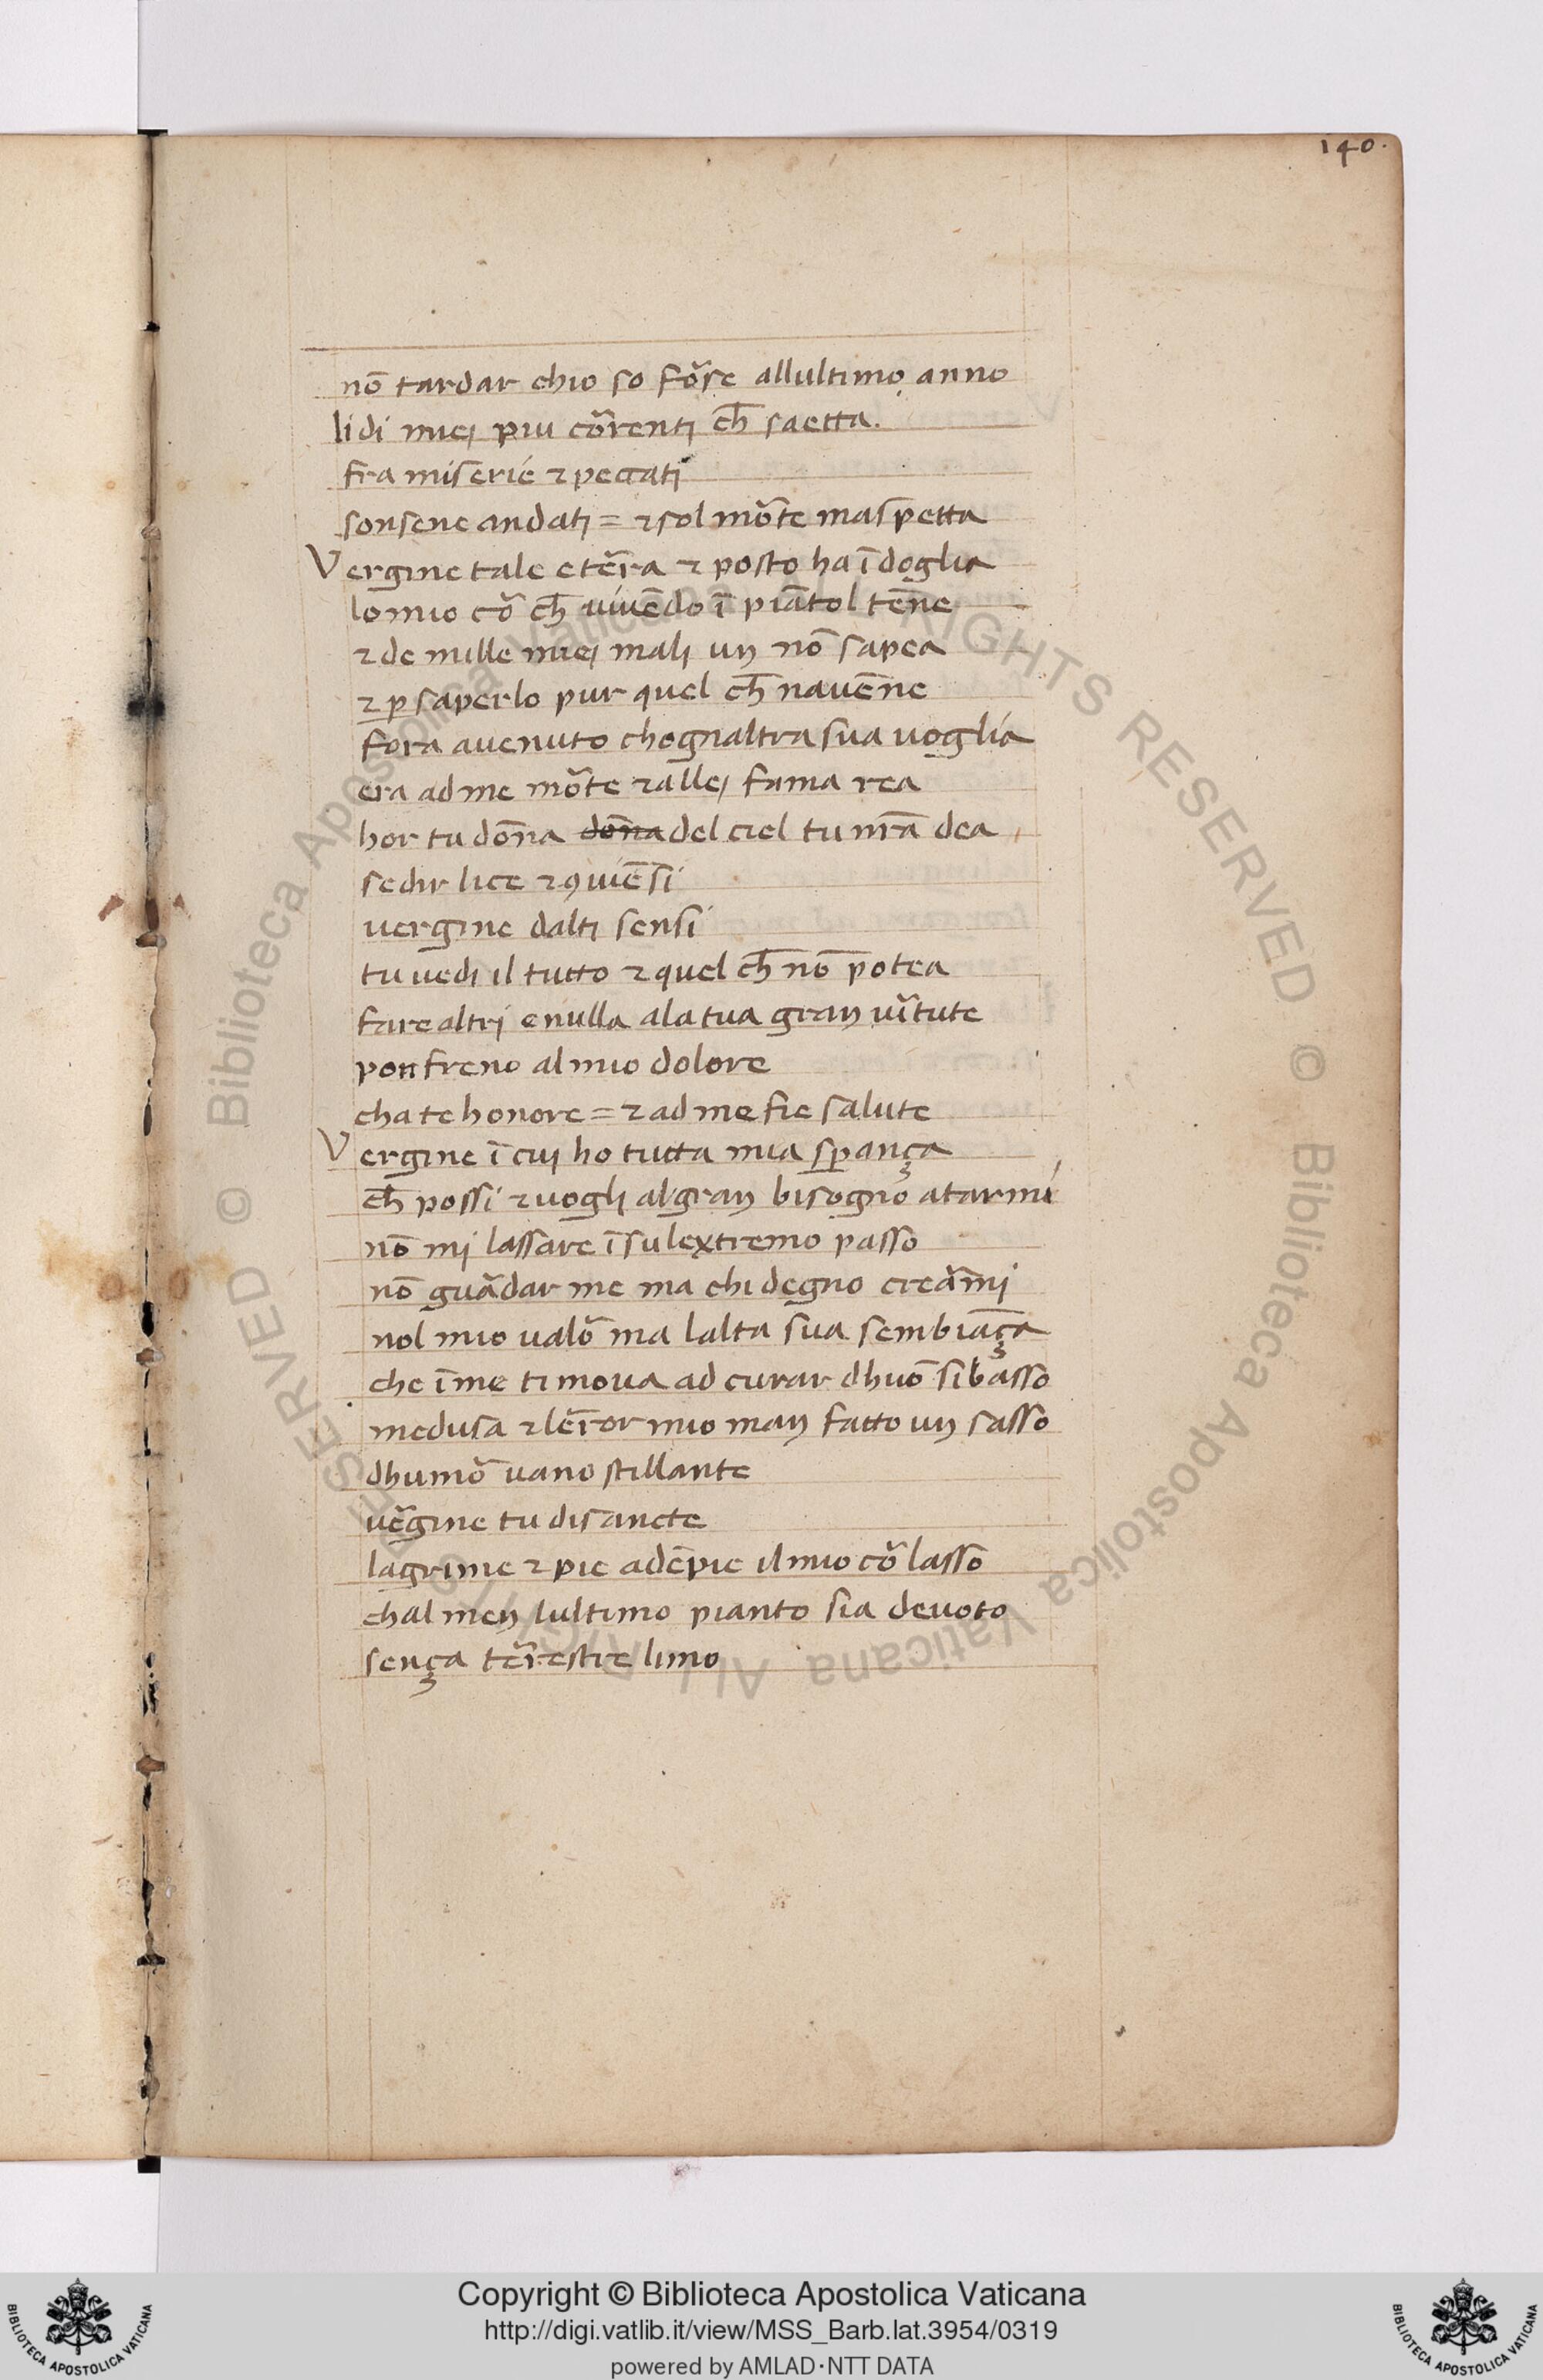 140.
nō tardar chio so fōse allultimo anno
li di miei piu cōrenti ch̄ saetta.
fra miserie ⁊ peccati
sonsene andati = ⁊ sol mōte maspetta
Vergine tale e tēra ⁊ posto ha ī doglia
lo mio cō ch̄ vivēdo ī piātol tēne
⁊ de mille miei mali un nō sapea
⁊ ꝑ saperlo pur quel ch̄ navēne
fora avenuto chognaltra sua voglia
era ad me mōte ⁊ allei fama rea
hor tu dōna dōna del ciel tu nr̄a dea
se dir lice ⁊ ꝯviēsi
vergine dalti sensi
tu vedi il tutto ⁊ quel ch̄ nō potea
fare altri e nulla ala tua gran vītute
pon freno al mio dolore
cha te honore = ⁊ ad me fie salute
Vergine ī cui ho tutta mia sꝑança
ch̄ possi ⁊ vogli al gran bisogno atarmi
nō mi lassare ī sul extremo passo
nō guādar me ma chi degno creāmi
nol mio valō ma lalta sua sembiāça
che ī me ti mova ad curar dhuō si basso
medusa ⁊ lēror mio man fatto un sasso
dhumō vano stillante
vēgine tu di sancte
lagrime ⁊ pie adēpie il mio cō lasso
chal men lultimo pianto sia devoto
sença tērestre limo
Copyright © Biblioteca Apostolica Vaticana
http://digi.vatlib.it/view/MSS_Barb.lat.3954/0319
powered by AMLAD·NTT DATA